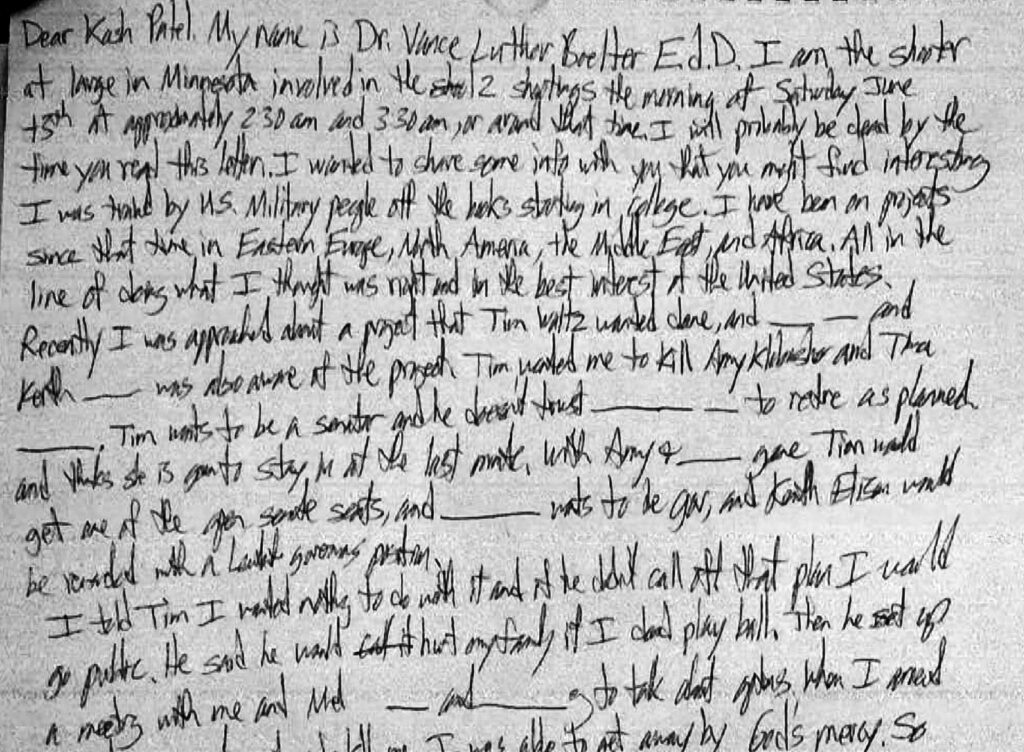 Dear Kash Patel. My name is Dr. Vance Luther Boelter E.d.D. I am the shooter
at large in Minnesota involved in the 2 shootings the morning of Saturday June
15th at approximately 230 am and 330 am, or around that time. I will probably be dead by the
time you read this letter. I wanted to share some info with you that you might find interesting
I was trained by U.S. Military people off the books starting in college. I have been on projects
since that time in Eastern Europe, North America, the Middle East, and Africa. All in the
line of doing what I thought was right and in the best interest of the United States.
Recently I was approached about a project that Tim Waltz wanted done, and ___ ___ and
Keith ___ was also aware of the project. Tim wanted me to kill Amy Klobuchar and Tina
___. Tim wants to be a senator and he doesn't trust ___ ___ to retire as planned.
and thinks she is goin to stay in at the last minute. With Amy & ___ gone Tim would
get one of the open senate seats, and ___ wants to be Gov, and Keith Elison would
be rewarded with a position.
I told Tim I wanted nothing to do with it and if he didn't call off that plan I would
go public. He said he would hurt my family if I didn't play ball. Then he set up
a meeting with me and ___ and ___ to talk about options. When I arrived
I was able to get away by God's mercy. So